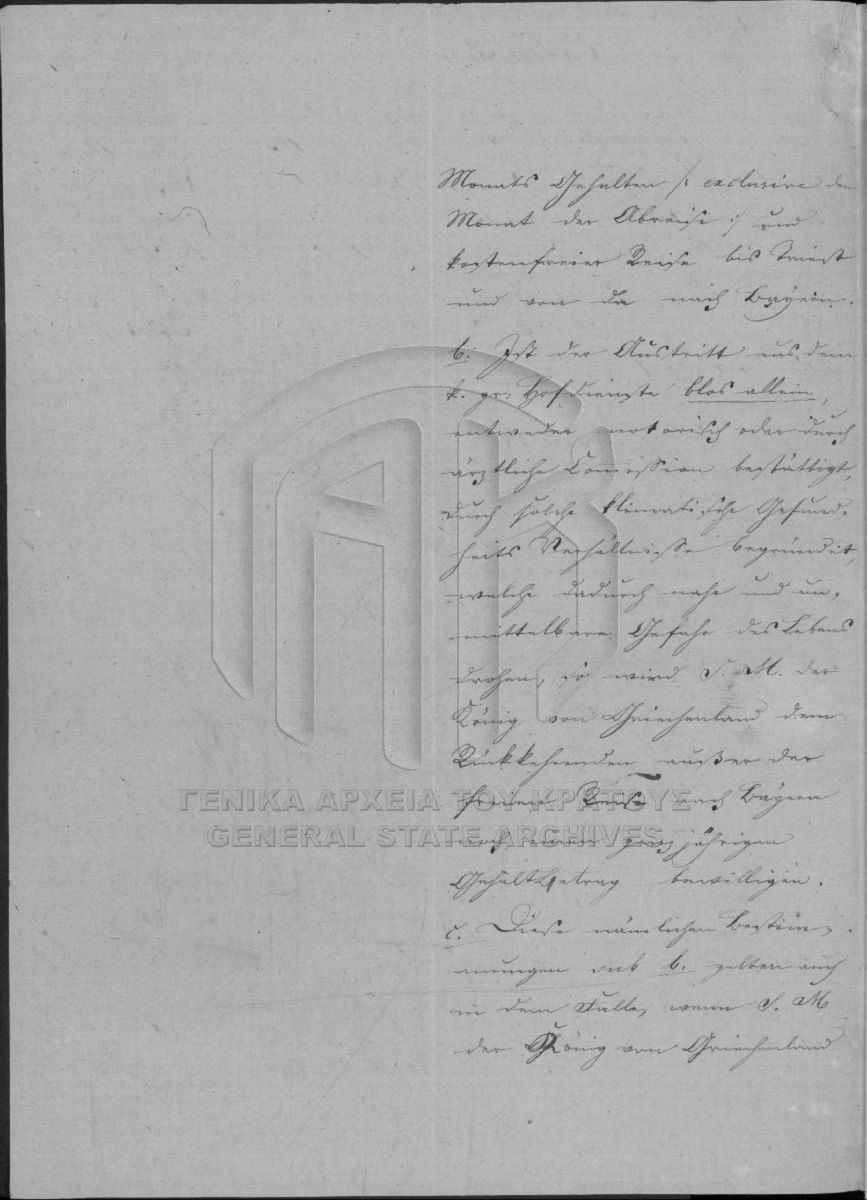 Monats Gehalten /: exclusive den
Monat der Abreise :/ und
kostenfreier Reise bis Triest
und von da nach Bayern.
b. Ist der Austritt aus dem
k. gr: Hofdienste blos allein,
entweder notorisch oder durch
ärztliche Comission bestättigt,
durch solche klimatische Gesund-
heits Verhältnisse begründet,
welche dadurch nahe und un-
mittelbare Gefahr des Lebens
drohen, so wird S. M. der
König von Griechenland dem
Rückkehrenden außer der
freien Reise nach Bayern
noch einen ganz jährigen
Gehaltbetrag bewilligen.
ΓΕΝΙΚΑ ΑΡΧΕΙΑ ΤΟΥ ΚΡΑΤΟΥΣ
GENERAL STATE ARCHIVES
c. Diese nämlichen Bestim-
mungen sub b. gelten auch
in dem Falle, wenn S. M
der König von Griechenland